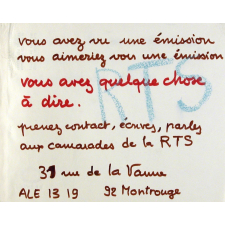 vous avez vu une émission
vous aimeriez voir une émission
vous avez quelque chose
à dire.
RTS
prenez contact, écrivez, parlez
aux camarades de la RTS
31 rue de la Vanne
ALE 13 19 92 Montrouge